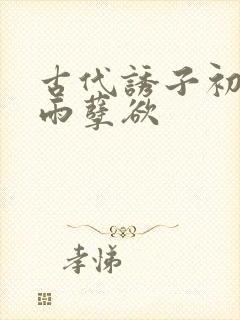 古代誘子初
雨孽欲
孝悌